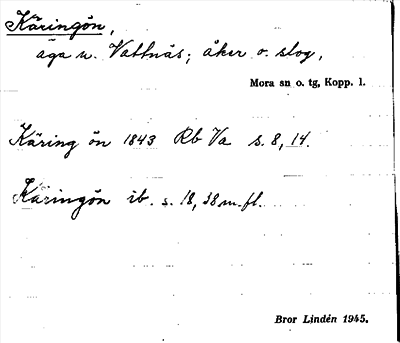 Käringön,
äga u. Vattnäs; åker o. slog,
Mora sn o. tg, Kopp. l.
Käring ön 1843 Rb Va s. 8, 14.
Käringön ib. s. 18, 38 m. fl.
Bror Lindén 1945.